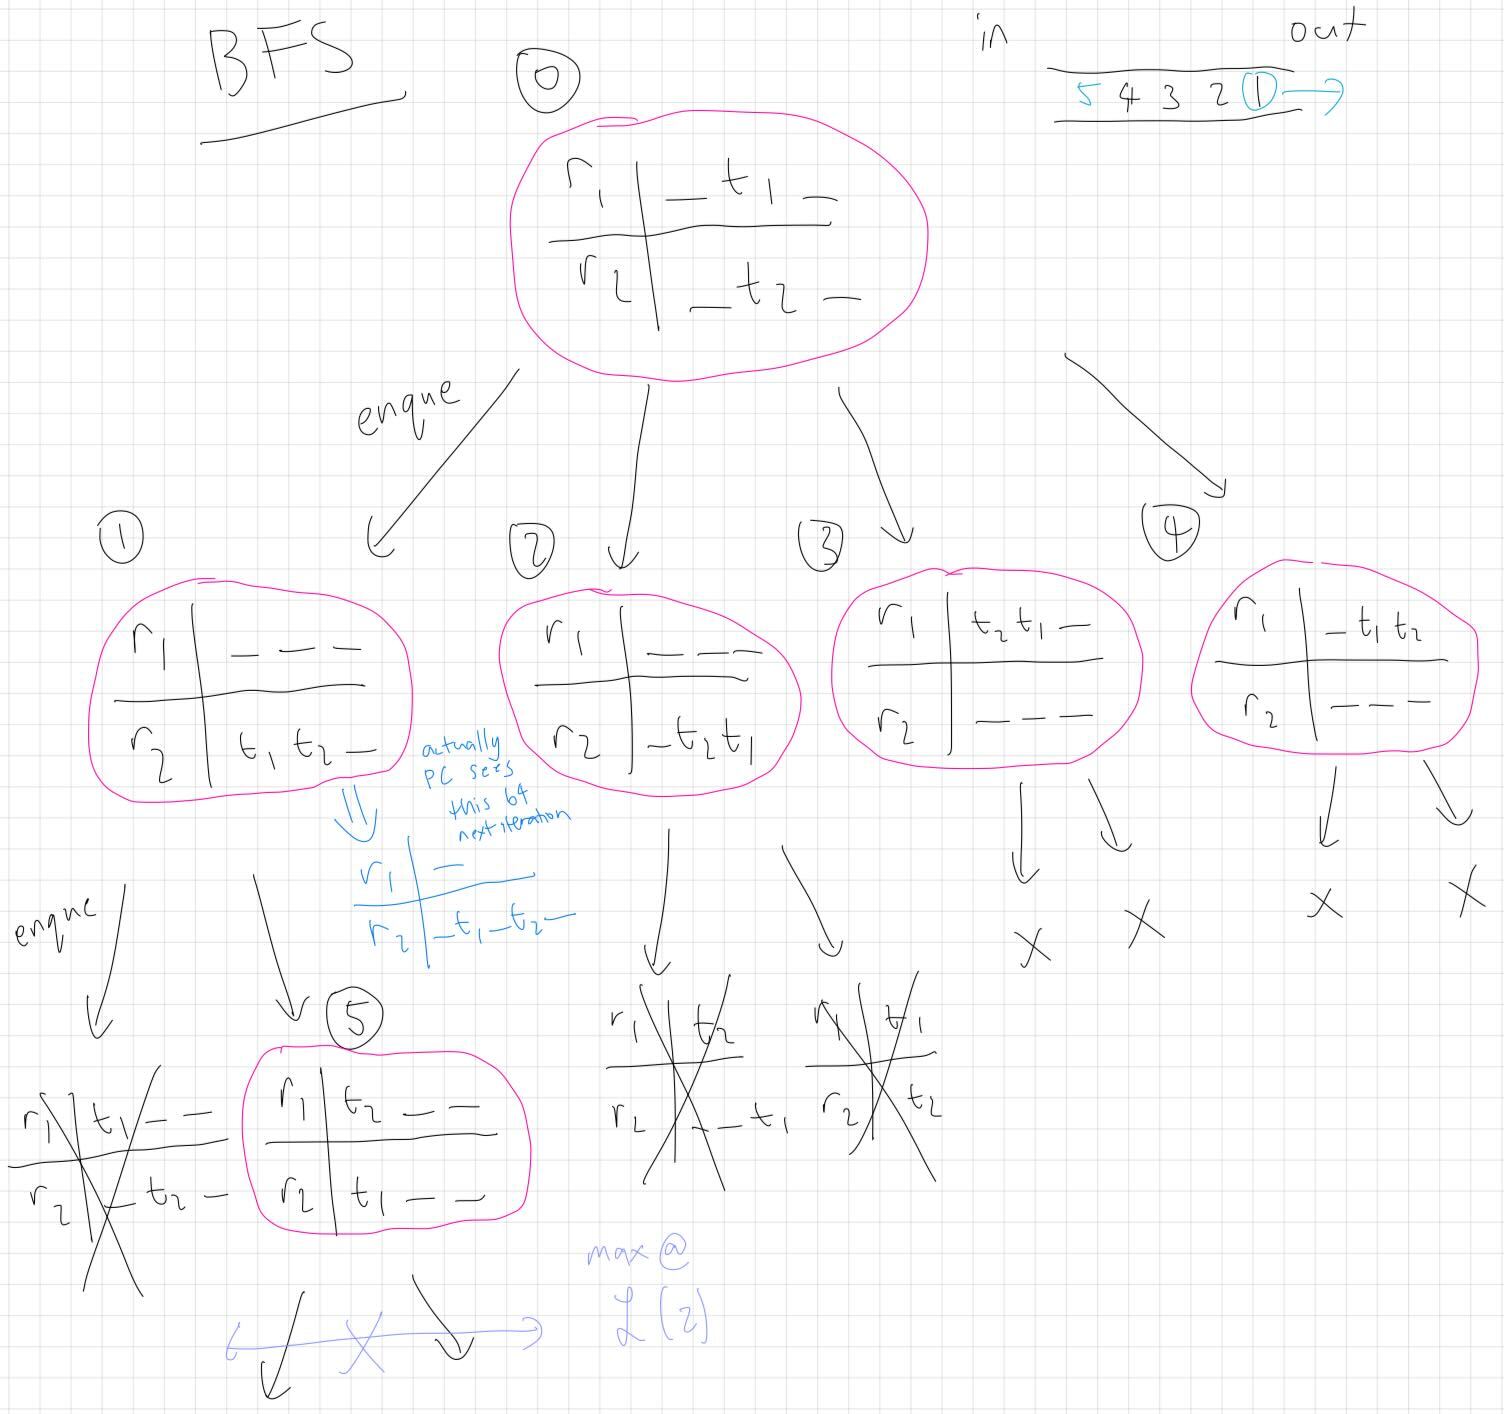 BFS
in out
5 4 3 2 1
0
r1 _ t1 _
r2 _ t2 _
enque
1
r1 _ _ _
r2 t1 t2 _
2
r1 _ _ _
r2 _ t2 t1
3
r1 t2 t1 _
r2 _ _ _
4
r1 _ t1 t2
r2 _ _ _
actually
PC sees
this b4
next iteration
r1 _
r2 _ t1 _ t2 _
enque
X X X X
r1 t1 _ _
r2 _ t2 _
5
r1 t2 _ _
r2 t1 _ _
r1 t2
r2 _ _ t1
r1 t1
r2 t2
X
max @
L(2)